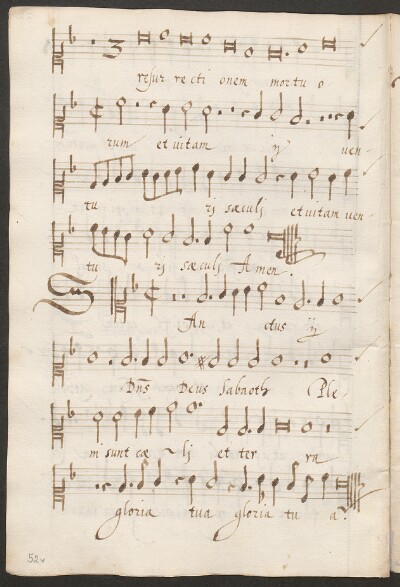 3
resur recti onem mortu o
rum et vitam ij ven
tu rj sæculj et vitam ven
tu rj sæculj Amen.
San ctus ij
Dns Deus Sabaoth Ple
ni sunt cæ lj et ter ra
gloria tua gloria tu a.
52v